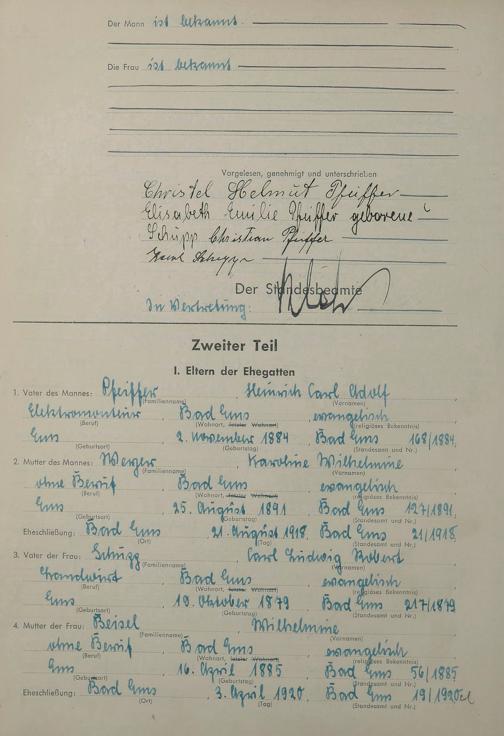 Der Mann ist bekannt.
Die Frau ist bekannt
Vorgelesen, genehmigt und unterschrieben
Christel Helmut Pfeiffer
Elisabeth Emilie Pfeiffer geborene
Schupp Christian Pfeiffer
Karl Schupp
Der Standesbeamte
In Vertretung:
Zweiter Teil
I. Eltern der Ehegatten
1. Vater des Mannes: Pfeiffer, Heinrich Carl Adolf
(Familienname) (Vornamen)
Elektromonteur, Bad Ems, evangelisch
(Beruf) (Wohnort, letzter Wohnort) (religiöses Bekenntnis)
Ems, 2. November 1884, Bad Ems 168/1884.
(Geburtsort) (Geburtstag) (Standesamt und Nr.)
2. Mutter des Mannes: Karoline Wilhelmine
(Familienname) (Vornamen)
ohne Beruf, Bad Ems, evangelisch
(Beruf) (Wohnort, letzter Wohnort) (religiöses Bekenntnis)
Ems, 25. August 1891, Bad Ems 127/1891.
(Geburtsort) (Geburtstag) (Standesamt und Nr.)
Eheschließung: Bad Ems, 21. August 1918, Bad Ems 21/1918.
(Ort) (Tag) (Standesamt und Nr.)
3. Vater der Frau: Schupp, Carl Ludwig Robert
(Familienname) (Vornamen)
Landwirt, Bad Ems, evangelisch
(Beruf) (Wohnort, letzter Wohnort) (religiöses Bekenntnis)
Ems, 19. Oktober 1879, Bad Ems 217/1879
(Geburtsort) (Geburtstag) (Standesamt und Nr.)
4. Mutter der Frau: Beisel, Wilhelmine
(Familienname) (Vornamen)
ohne Beruf, Bad Ems, evangelisch
(Beruf) (Wohnort, letzter Wohnort) (religiöses Bekenntnis)
Ems, 16. April 1885, Bad Ems 56/1885
(Geburtsort) (Geburtstag) (Standesamt und Nr.)
Eheschließung: Bad Ems, 3. April 1920, Bad Ems 19/1920
(Ort) (Tag) (Standesamt und Nr.)